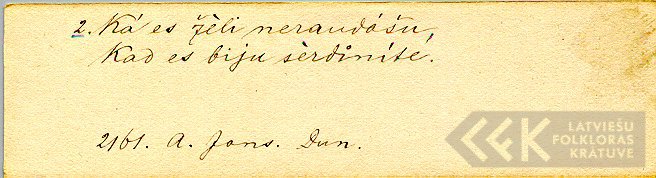 2. Kā es žēli neraudāšu,
Kad es biju sērdiníte.
2161. A. Jans. Dun.
LATVIEŠU
FOLKLORAS
KRĀTUVE